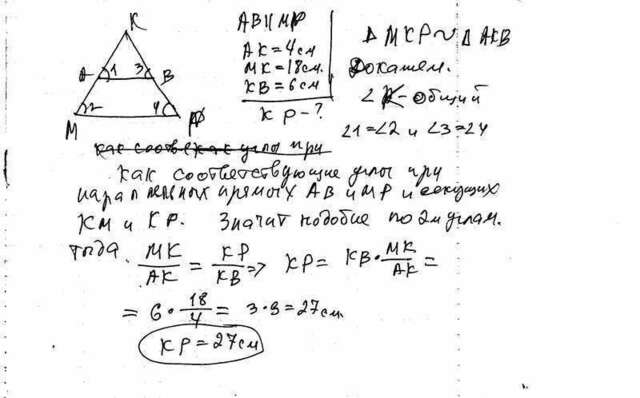 K
A 1 3 B
M 2 4 P
AB || MP
AK = 4 см
MK = 18 см.
KB = 6 см
KP - ?
Δ MKP ~ Δ AKB
Докажем.
∠ K - общий
∠1 = ∠2 и ∠3 = ∠4
как соответствующие углы при
параллельных прямых AB и MP и секущих
KM и KP. Значит подобие по 2м углам.
тогда. MK/AK = KP/KB => KP = KB · MK/AK =
= 6 · 18/4 = 3 · 9 = 27 см
KP = 27 см